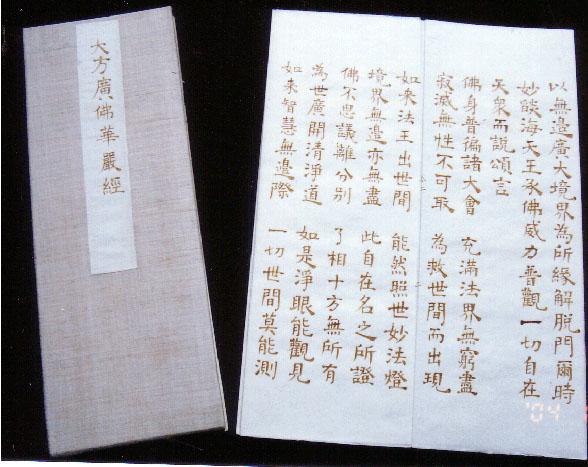 大方廣佛華嚴經
以無邊廣大境界為所緣解脫門爾時
妙燄海天王承佛威力普觀一切自在
天衆而說頌言
佛身普徧諸大會 充滿法界無窮盡
寂滅無性不可取 為救世間而出現
如来法王出世間 能然照世妙法燈
境界無邊亦無盡 此自在名之所證
佛不思議離分別 了相十方無所有
為世廣開清淨道 如是淨眼能觀見
如来智慧無邊際 一切世間莫能測
'04